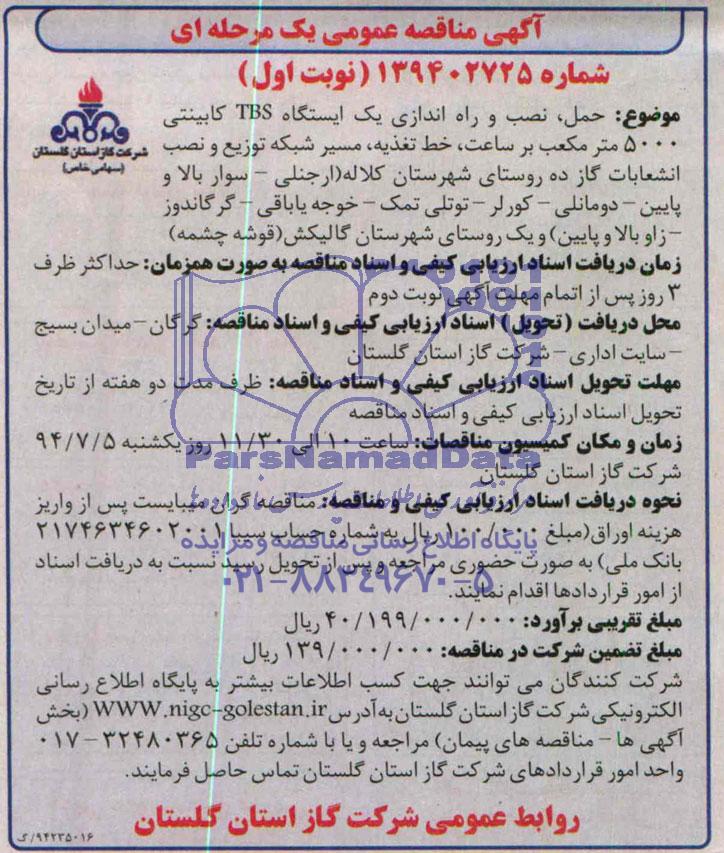 آگهی مناقصه عمومی یک مرحله ای
شماره ۱۳۹۴۰۲۷۲۵ (نوبت اول)
شرکت گاز استان گلستان
(سهامی خاص)
موضوع: حمل، نصب و راه اندازی یک ایستگاه TBS کابینتی
۵۰۰۰ متر مکعب بر ساعت، خط تغذیه، مسیر شبکه توزیع و نصب
انشعابات گاز ده روستای شهرستان کلاله(ارجنلی - سوار بالا و
پایین - دومانلی - کورلر - توتلی تمک - خوجه یاباقی - گرگاندوز
- زاو بالا و پایین) و یک روستای شهرستان گالیکش(قوشه چشمه)
زمان دریافت اسناد ارزیابی کیفی و اسناد مناقصه به صورت همزمان: حداکثر ظرف
۳ روز پس از اتمام مهلت آگهی نوبت دوم
محل دریافت (تحویل) اسناد ارزیابی کیفی و اسناد مناقصه: گرگان - میدان بسیج
- سایت اداری - شرکت گاز استان گلستان
مهلت تحویل اسناد ارزیابی کیفی و اسناد مناقصه: ظرف مدت دو هفته از تاریخ
تحویل اسناد ارزیابی کیفی و اسناد مناقصه
زمان و مکان کمیسیون مناقصات: ساعت ۱۰ الی ۱۱/۳۰ روز یکشنبه ۹۴/۷/۵
ParsNamadData
شرکت گاز استان گلستان
نحوه دریافت اسناد ارزیابی کیفی و مناقصه: مناقصه گران میبایست پس از واریز
هزینه اوراق(مبلغ ۱۰۰/۰۰۰ ریال به شماره حساب سیبا ۲۱۷۴۶۳۴۶۰۲۰۰۱
پایگاه اطلاع رسانی مناقصه و مزایده
بانک ملی) به صورت حضوری مراجعه و پس از تحویل رسید نسبت به دریافت اسناد
۰۲۱-۸۸۳۴۹۶۷۰-۵
از امور قراردادها اقدام نمایند.
مبلغ تقریبی برآورد: ۴۰/۱۹۹/۰۰۰/۰۰۰ ریال
مبلغ تضمین شرکت در مناقصه: ۱۳۹/۰۰۰/۰۰۰ ریال
شرکت کنندگان می توانند جهت کسب اطلاعات بیشتر به پایگاه اطلاع رسانی
الکترونیکی شرکت گاز استان گلستان به آدرس WWW.nigc-golestan.ir (بخش
آگهی ها - مناقصه های پیمان) مراجعه و یا با شماره تلفن ۳۲۴۸۰۳۶۵ - ۰۱۷
واحد امور قراردادهای شرکت گاز استان گلستان تماس حاصل فرمایند.
روابط عمومی شرکت گاز استان گلستان
۹۴۲۳۵۰۱۶/گ